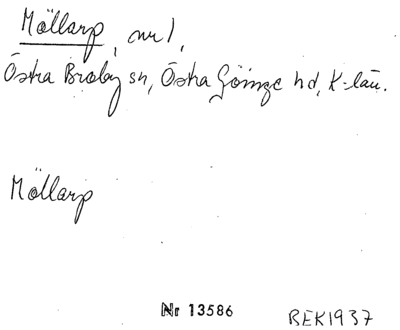 Möllarp, nr 1,
Östra Broby sn, Östra Göinge hd, K-län.
Möllarp
Nr 13586
BEK1937